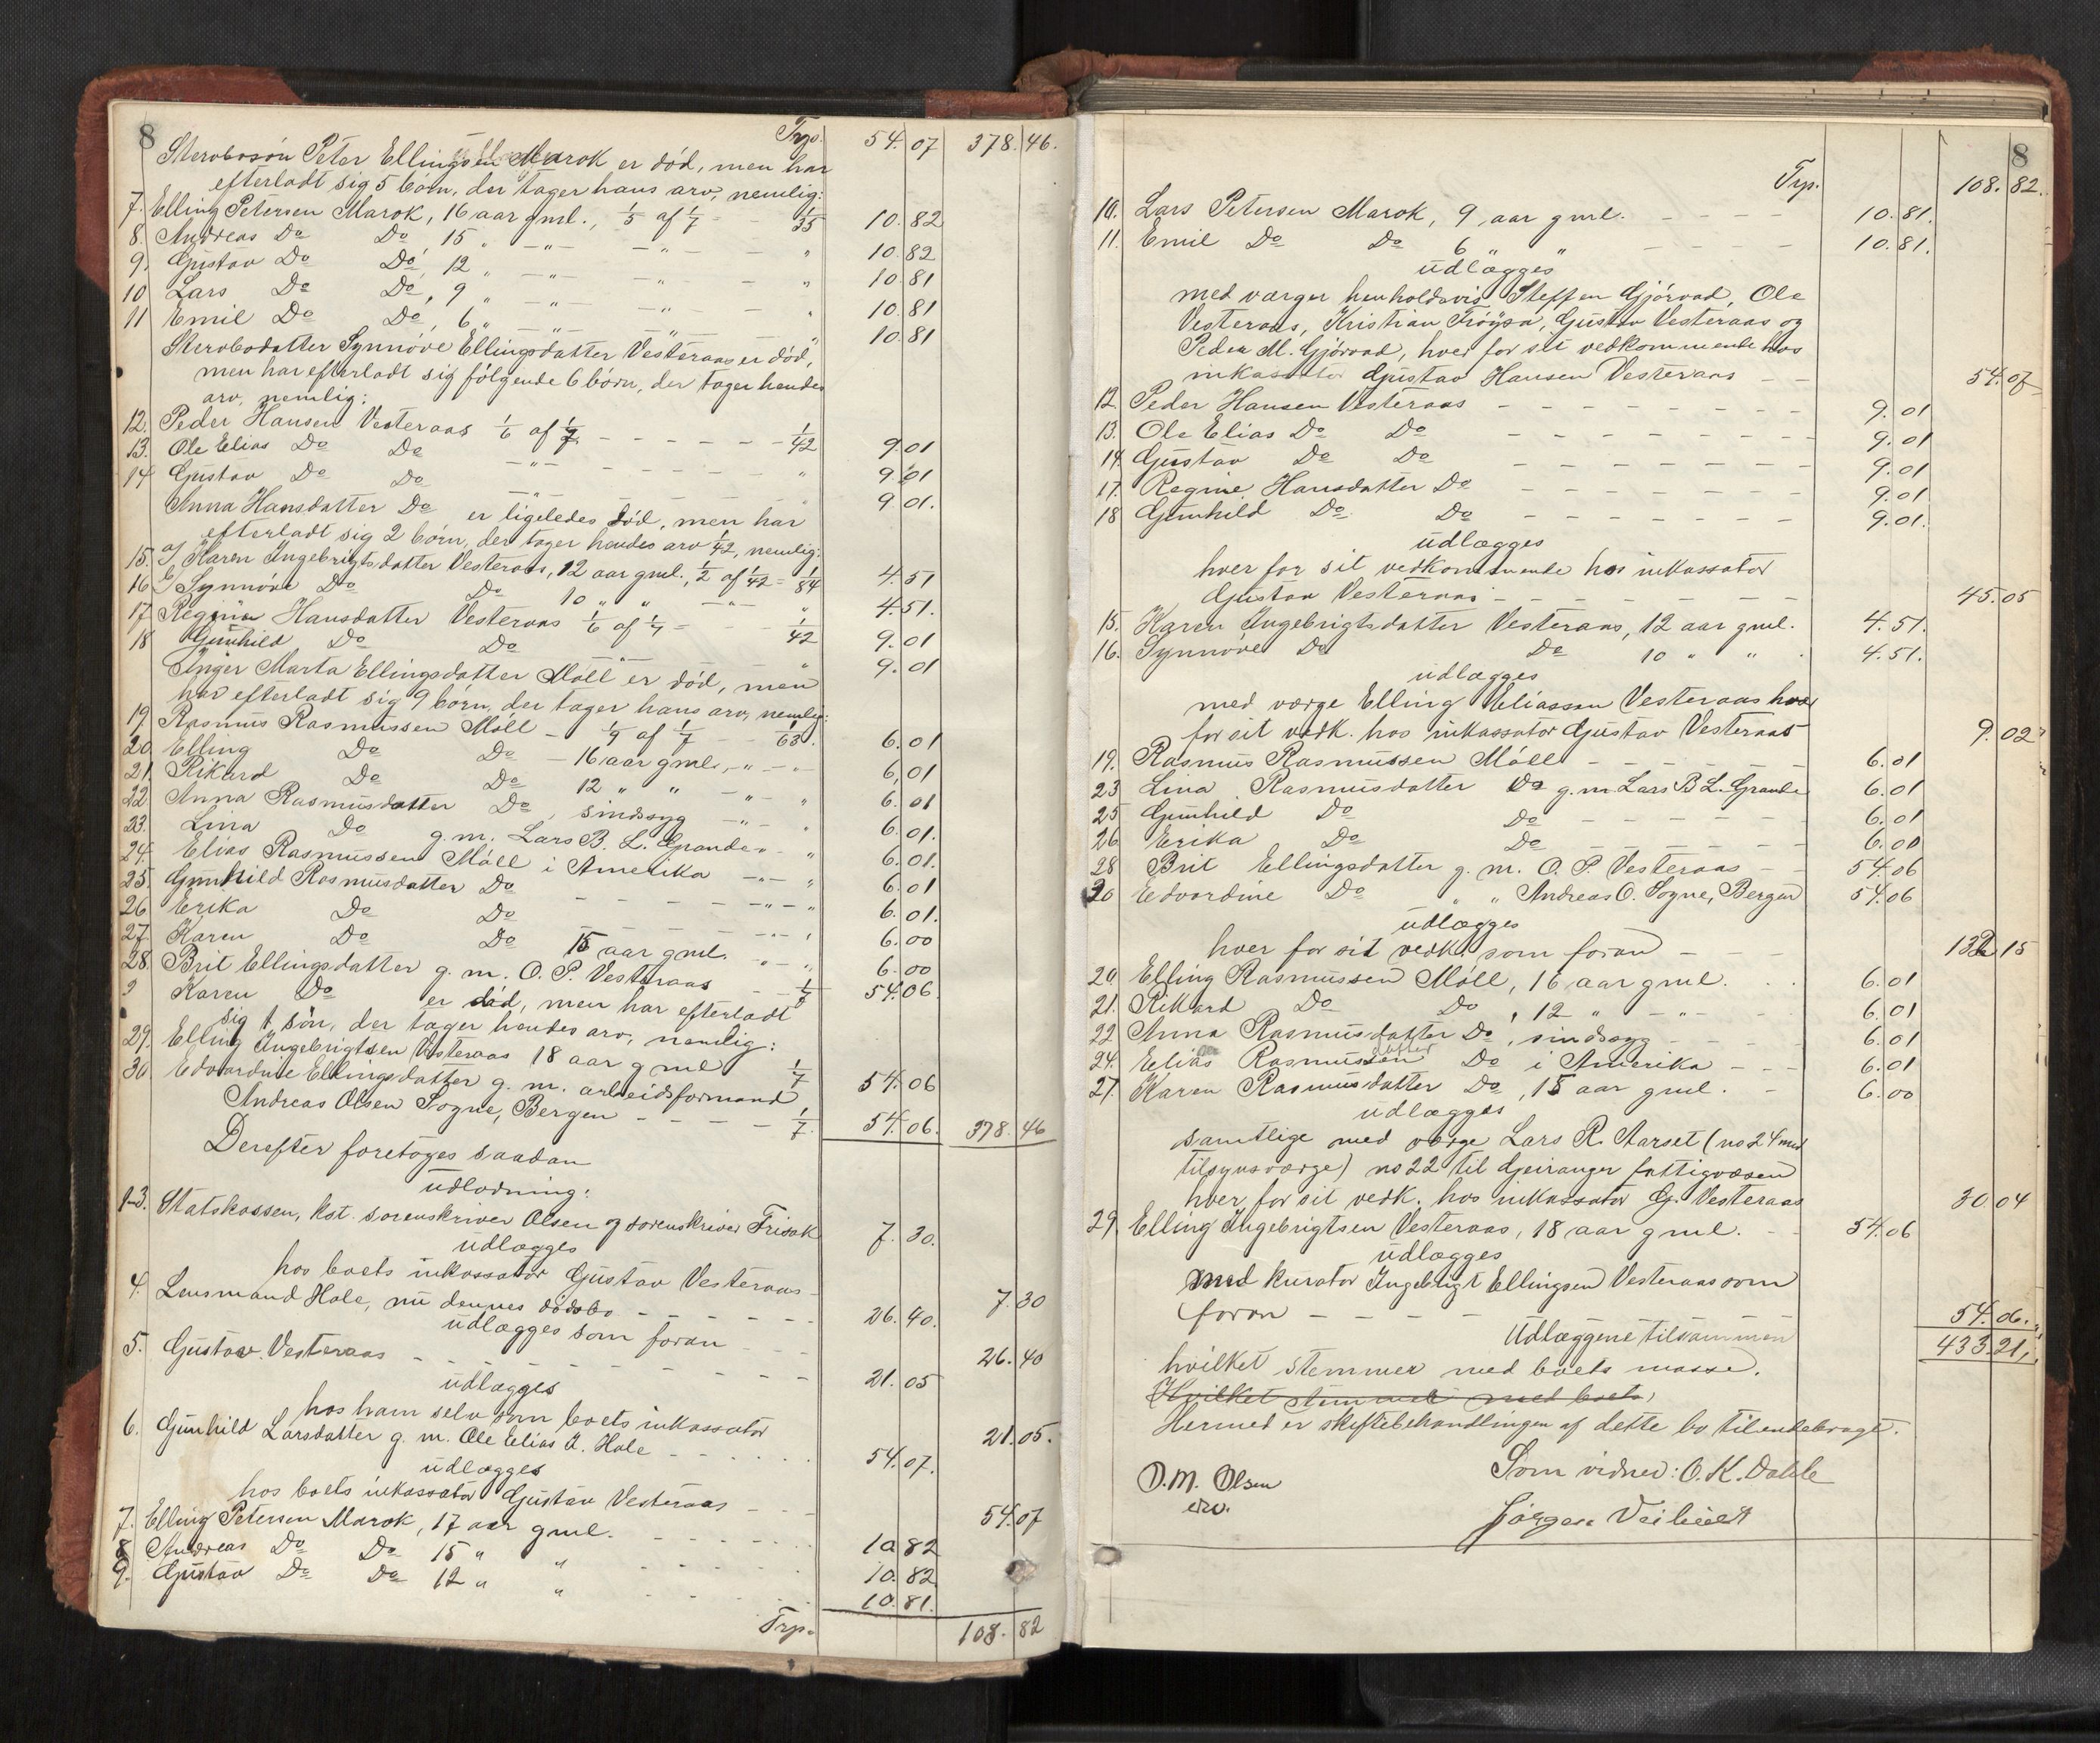 8 Trp. 54.07 378.46.
Stervbosön Peter Ellingsen Marok er död, men har
efterladt sig 5 börn, der tager hans arv, nemlig:
7. Elling Petersen Marok, 16 aar gml., 1/5 af 1/7 - 1/35 10.82
8. Andreas Do Do 15 " -"- -"- " 10.82
9. Gustav Do Do, 12 " -"- " - " 10.81
10 Lars Do Do, 9 " -"- -"- " 10.81
11 Emil Do Do, 6 " -"- -"- " 10.81
Stervbodatter Synnöve Ellingsdatter Vesteraas er död,
men har efterladt sig fölgende 6 börn, der tager hendes
arv, nemlig:
12. Peder Hansen Vesteraas 1/6 af 1/7 - - - - - 1/42 9.01
13. Ole Elias Do Do -"- - - - - " 9.01
14 Gustav Do Do -"- " 9.01.
Anna Hansdatter Do er ligeledes död, men har
efterladt sig 2 börn, der tager hendes arv 1/42, nemlig:
15. Karen Ingebrigtsdatter Vesteraas, 12 aar gml., 1/2 af 1/42 = 1/84 4.51
16 Synnöve Do Do 10 " " -"- " 4.51.
17 Regine Hansdatter Vesteraas 1/6 af 1/7 = 1/42 9.01
18 Gunhild Do Do -"- " 9.01
Inger Marta Ellingsdatter Möll er död, men
har efterladt sig 9 börn, der tager hans arv, nemlig:
19 Rasmus Rasmussen Möll - 1/9 af 1/7 - 1/63. 6.01
20. Elling Do Do - 16 aar gml., -"- " 6.01
21. Rikard Do Do 12 " " -"- " 6.01
22 Anna Rasmusdatter Do, sindssyg -"- " 6.01.
23. Lina Do g.m. Lars B. L. Grande -"- " 6.01.
24. Elias Rasmussen Möll i Amerika -"- " 6.01
25. Gunhild Rasmusdatter Do - - - - - -"- " 6.01.
26 Erika Do Do - - - - -"- " 6.00
27. Karen Do Do 15 aar gml. -"- " 6.00
28. Brit Ellingsdatter g. m. O. P. Vesteraas - 1/7 54.06
Karen Do er död, men har efterladt
sig 1 sön, der tager hendes arv, nemlig:
29. Elling Ingebrigtsen Vesteraas 18 aar gml 1/7 54.06
30 Edvardine Ellingsdatter g. m. arbeidsformand
Andreas Olsen Sogne, Bergen - - - - 1/7. 54.06. 378.46
Derefter foretoges saadan
udlodning:
1-3. Statskassen, kst. sorenskriver Olsen og sorenskriver Frisak 7.30.
udlægges
hos boets inkassator Gustav Vesteraas - 7.30
4. Lensmand Hole, nu dennes dödsbo - - - - - - 26.40.
udlægges som foran - - - 26.40
5. Gustav Vesteraas - - - - - - - - 21.05
udlægges
hos ham selv som boets inkassator 21.05.
6. Gunhild Larsdatter g. m. Ole Elias I. Hole - - - 54.07.
udlægges
hos boets inkassator Gustav Vesteraas - - 54.07
7. Elling Petersen Marok, 17 aar gml. - - - - 10.82
8. Andreas Do Do 15 " " - - - - 10.82
9. Gustav Do Do 12 " " - - - - 10.81.
Trp. 108.82
8
Trp. 108.82.
10. Lars Petersen Marok, 9 aar gml. - - - - 10.81.
11. Emil Do Do 6 " " - - - - 10.81.
udlægges
med værger henholdsvis Steffen Gjörvad, Ole
Vesteraas, Kristian Fröysa, Gustav Vesteraas og
Peder M. Gjörvad, hver for sit vedkommende hos
inkassator Gustav Hansen Vesteraas - - 54.07
12. Peder Hansen Vesteraas - - - - - - - - 9.01
13. Ole Elias Do Do - - - - - - - - 9.01
14. Gustav Do Do - - - - - - - - 9.01
17. Regine Hansdatter Do - - - - - - - 9.01
18 Gunhild Do. Do - - - - - - - 9.01.
udlægges
hver for sit vedkommende hos inkassator
Gustav Vesteraas - - - - - - - 45.05
15. Karen Ingebrigtsdatter Vesteraas, 12 aar gml. 4.51.
16. Synnöve Do Do 10 " " . 4.51.
udlægges
med værge Elling Eliassen Vesteraas hver
for sit vedk. hos inkassator Gustav Vesteraas 9.02
19. Rasmus Rasmussen Möll - - - - - - 6.01
23 Lina Rasmusdatter Do g.m. Lars B L. Grande 6.01
25 Gunhild Do Do - - - - - 6.01
26 Erika Do Do - - - - - 6.00
28 Brit Ellingsdatter g. m. O. P. Vesteraas - - 54.06
30 Edvardine Do " " Andreas O. Sogne, Bergen 54.06
udlægges
hver for sit vedk. som foran - - - 132.15
20. Elling Rasmussen Möll, 16 aar gml. . . 6.01
21. Rikard Do Do, 12 " -"- - 6.01
22 Anna Rasmusdatter Do, sindssyg - - - - 6.01
24. Elias Rasmussen Do i Amerika - - - 6.01
27. Karen Rasmusdatter Do, 15 aar gml. - 6.00
udlægges
samtlige med værge Lars R. Aarset (no 24 med
tilsynsværge) no 22 til Geiranger fattigvæsen
hver for sit vedk. hos inkassator G. Vesteraas 30.04
29. Elling Ingebrigtsen Vesteraas, 18 aar gml. - - 54.06
udlægges
med kurator Ingebrigt Ellingsen Vesteraas som
foran - - - - 54.06.
Udlæggene tilsammen 433.21,
hvilket stemmer med boets masse.
Hvilket stemmer med boets,
Hermed er skiftebehandlingen af dette bo tilendebragt.
O. M. Olsen Som vidner: O. K. Dahle